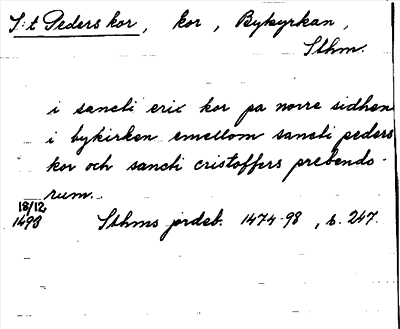 S:t Peders kor, kor, Bykyrkan,
Sthm.
i sancti eric kor pa norre sidhen
i bykirken emellom sancti peders
kor och sancti cristoffers prebendo-
rum.
18/12
1493 Sthms jordeb. 1474-98, s. 247.